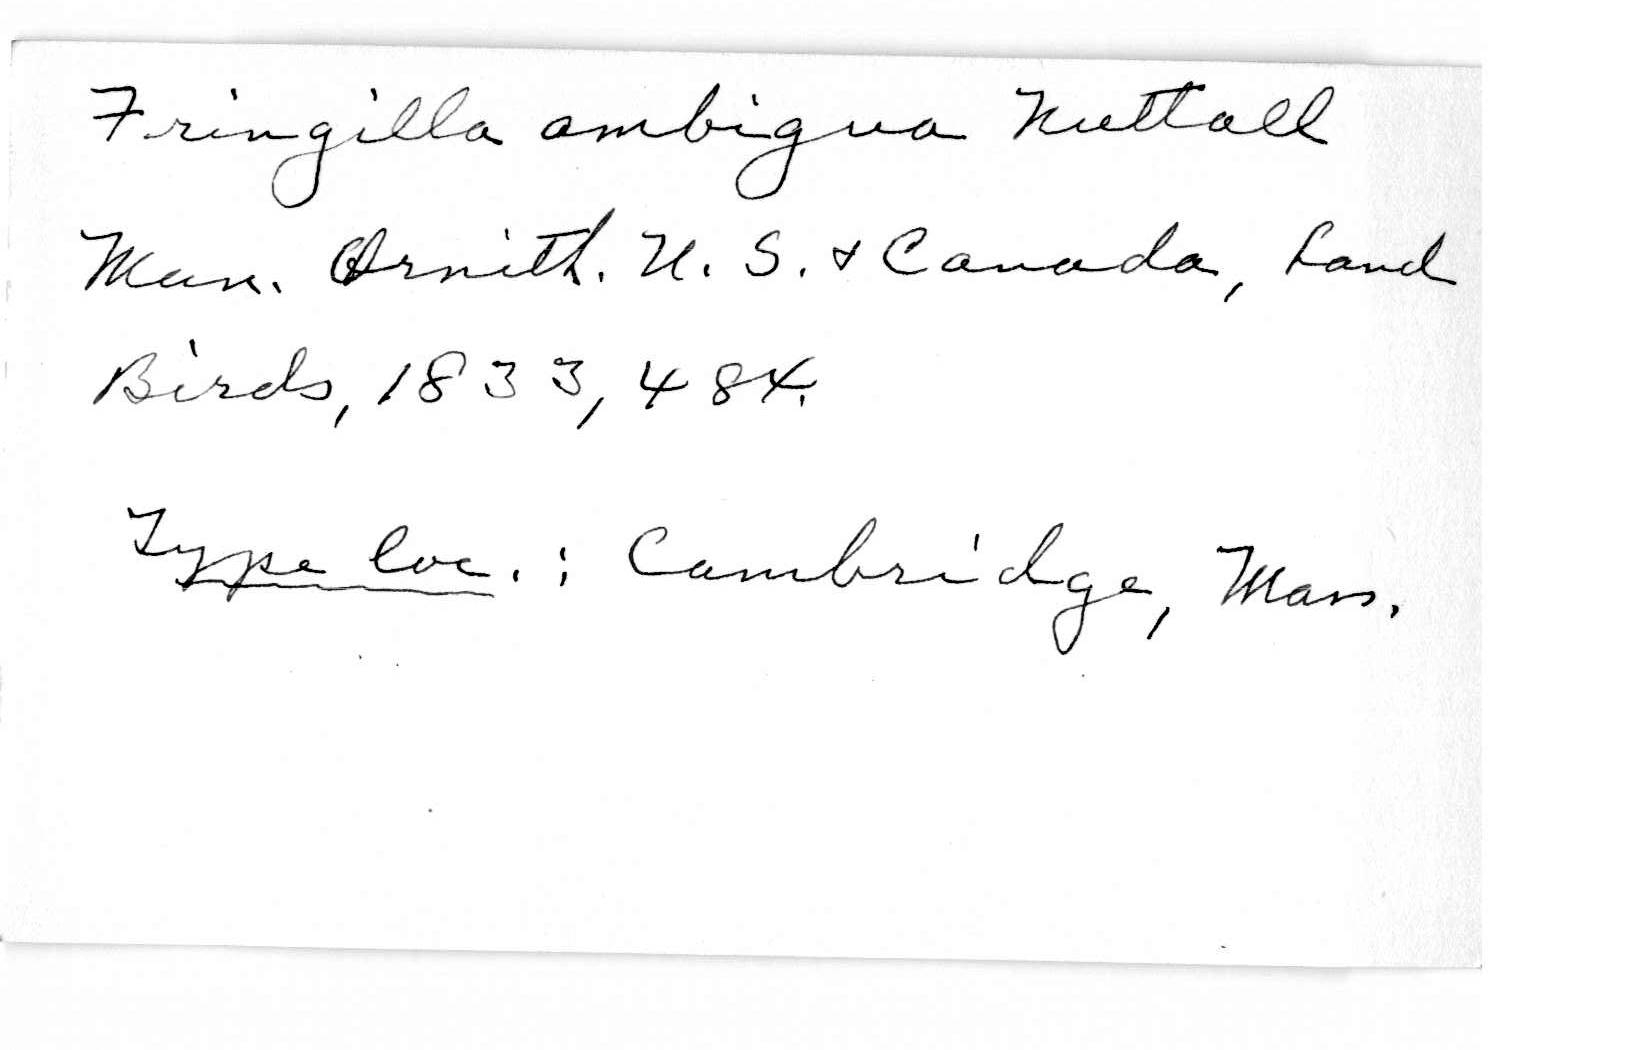 Fringilla ambigua Nuttall
Man. Ornith. U. S. & Canada, Land
Birds, 1833, 484.
Type loc. : Cambridge, Mass.